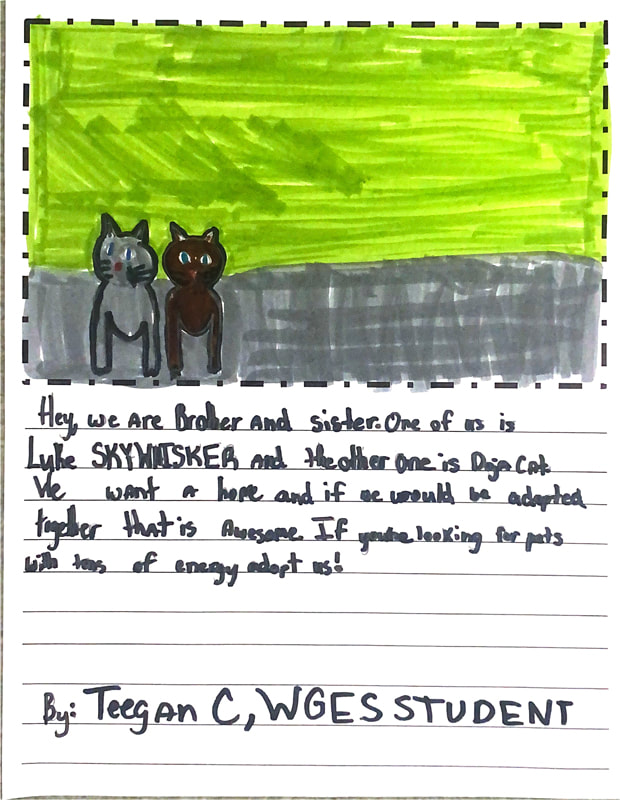 Hey, we are Brother And sister. One of us is
Luke SKYWHISKER And the other one is Doja Cat.
We want a hope and if we would be adopted
together that is Awesome. If you're looking for pets
with tons of energy adopt us!
By: Teegan C, WGES STUDENT